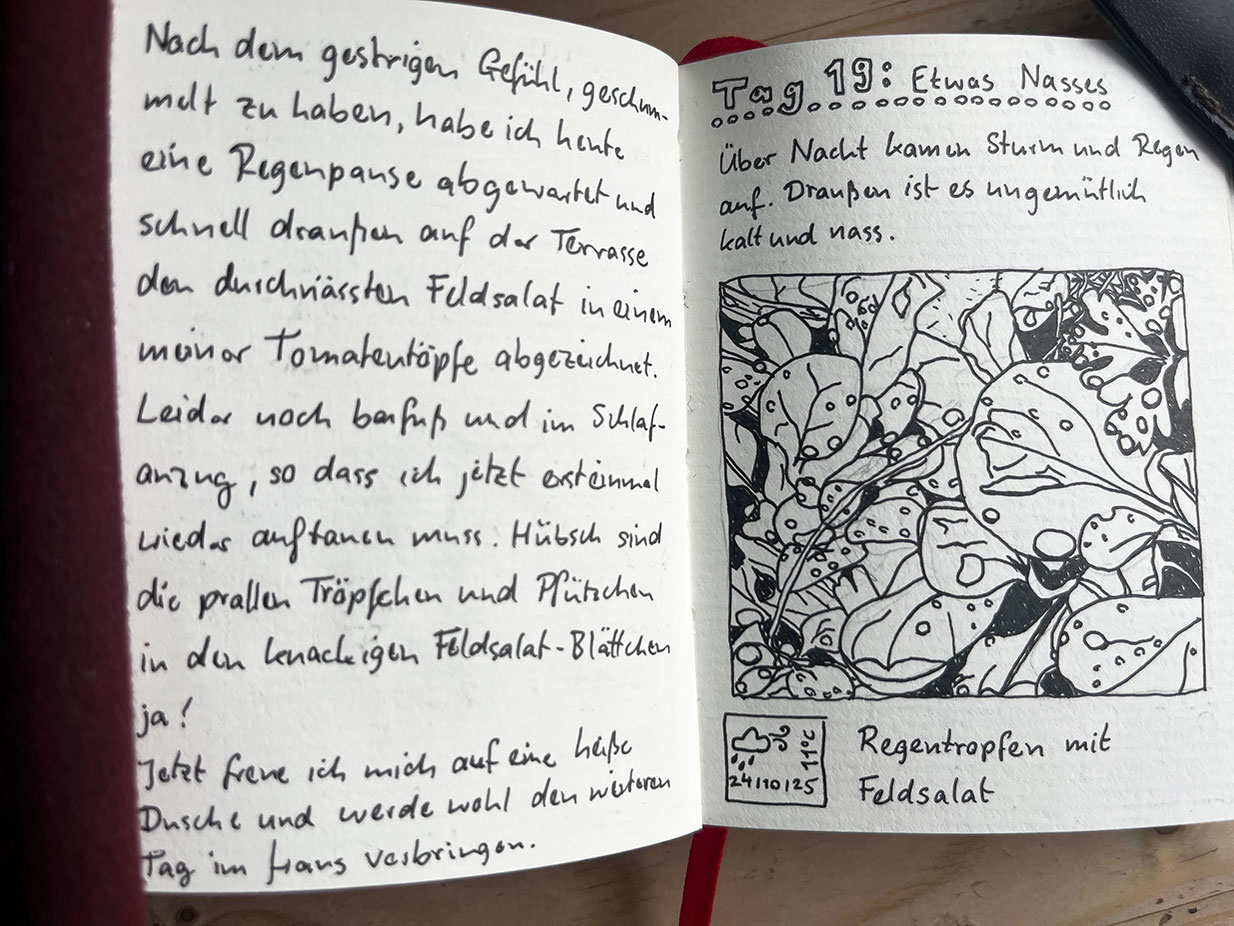 Nach dem gestrigen Gefühl, geschum-
melt zu haben, habe ich heute
eine Regenpause abgewartet und
schnell draußen auf der Terrasse
den durchnässten Feldsalat in einem
meiner Tomatentöpfe abgezeichnet.
Leider noch barfuß und im Schlaf-
anzug, so dass ich jetzt ersteinmal
wieder auftauen muss. Hübsch sind
die prallen Tröpfchen und Pfützchen
in den knackigen Feldsalat-Blättchen
ja!
Jetzt freue ich mich auf eine heiße
Dusche und werde wohl den weiteren
Tag im Haus verbringen.
Tag 19: Etwas Nasses
Über Nacht kamen Sturm und Regen
auf. Draußen ist es ungemütlich
kalt und nass.
11°C
24/10/25
Regentropfen mit
Feldsalat